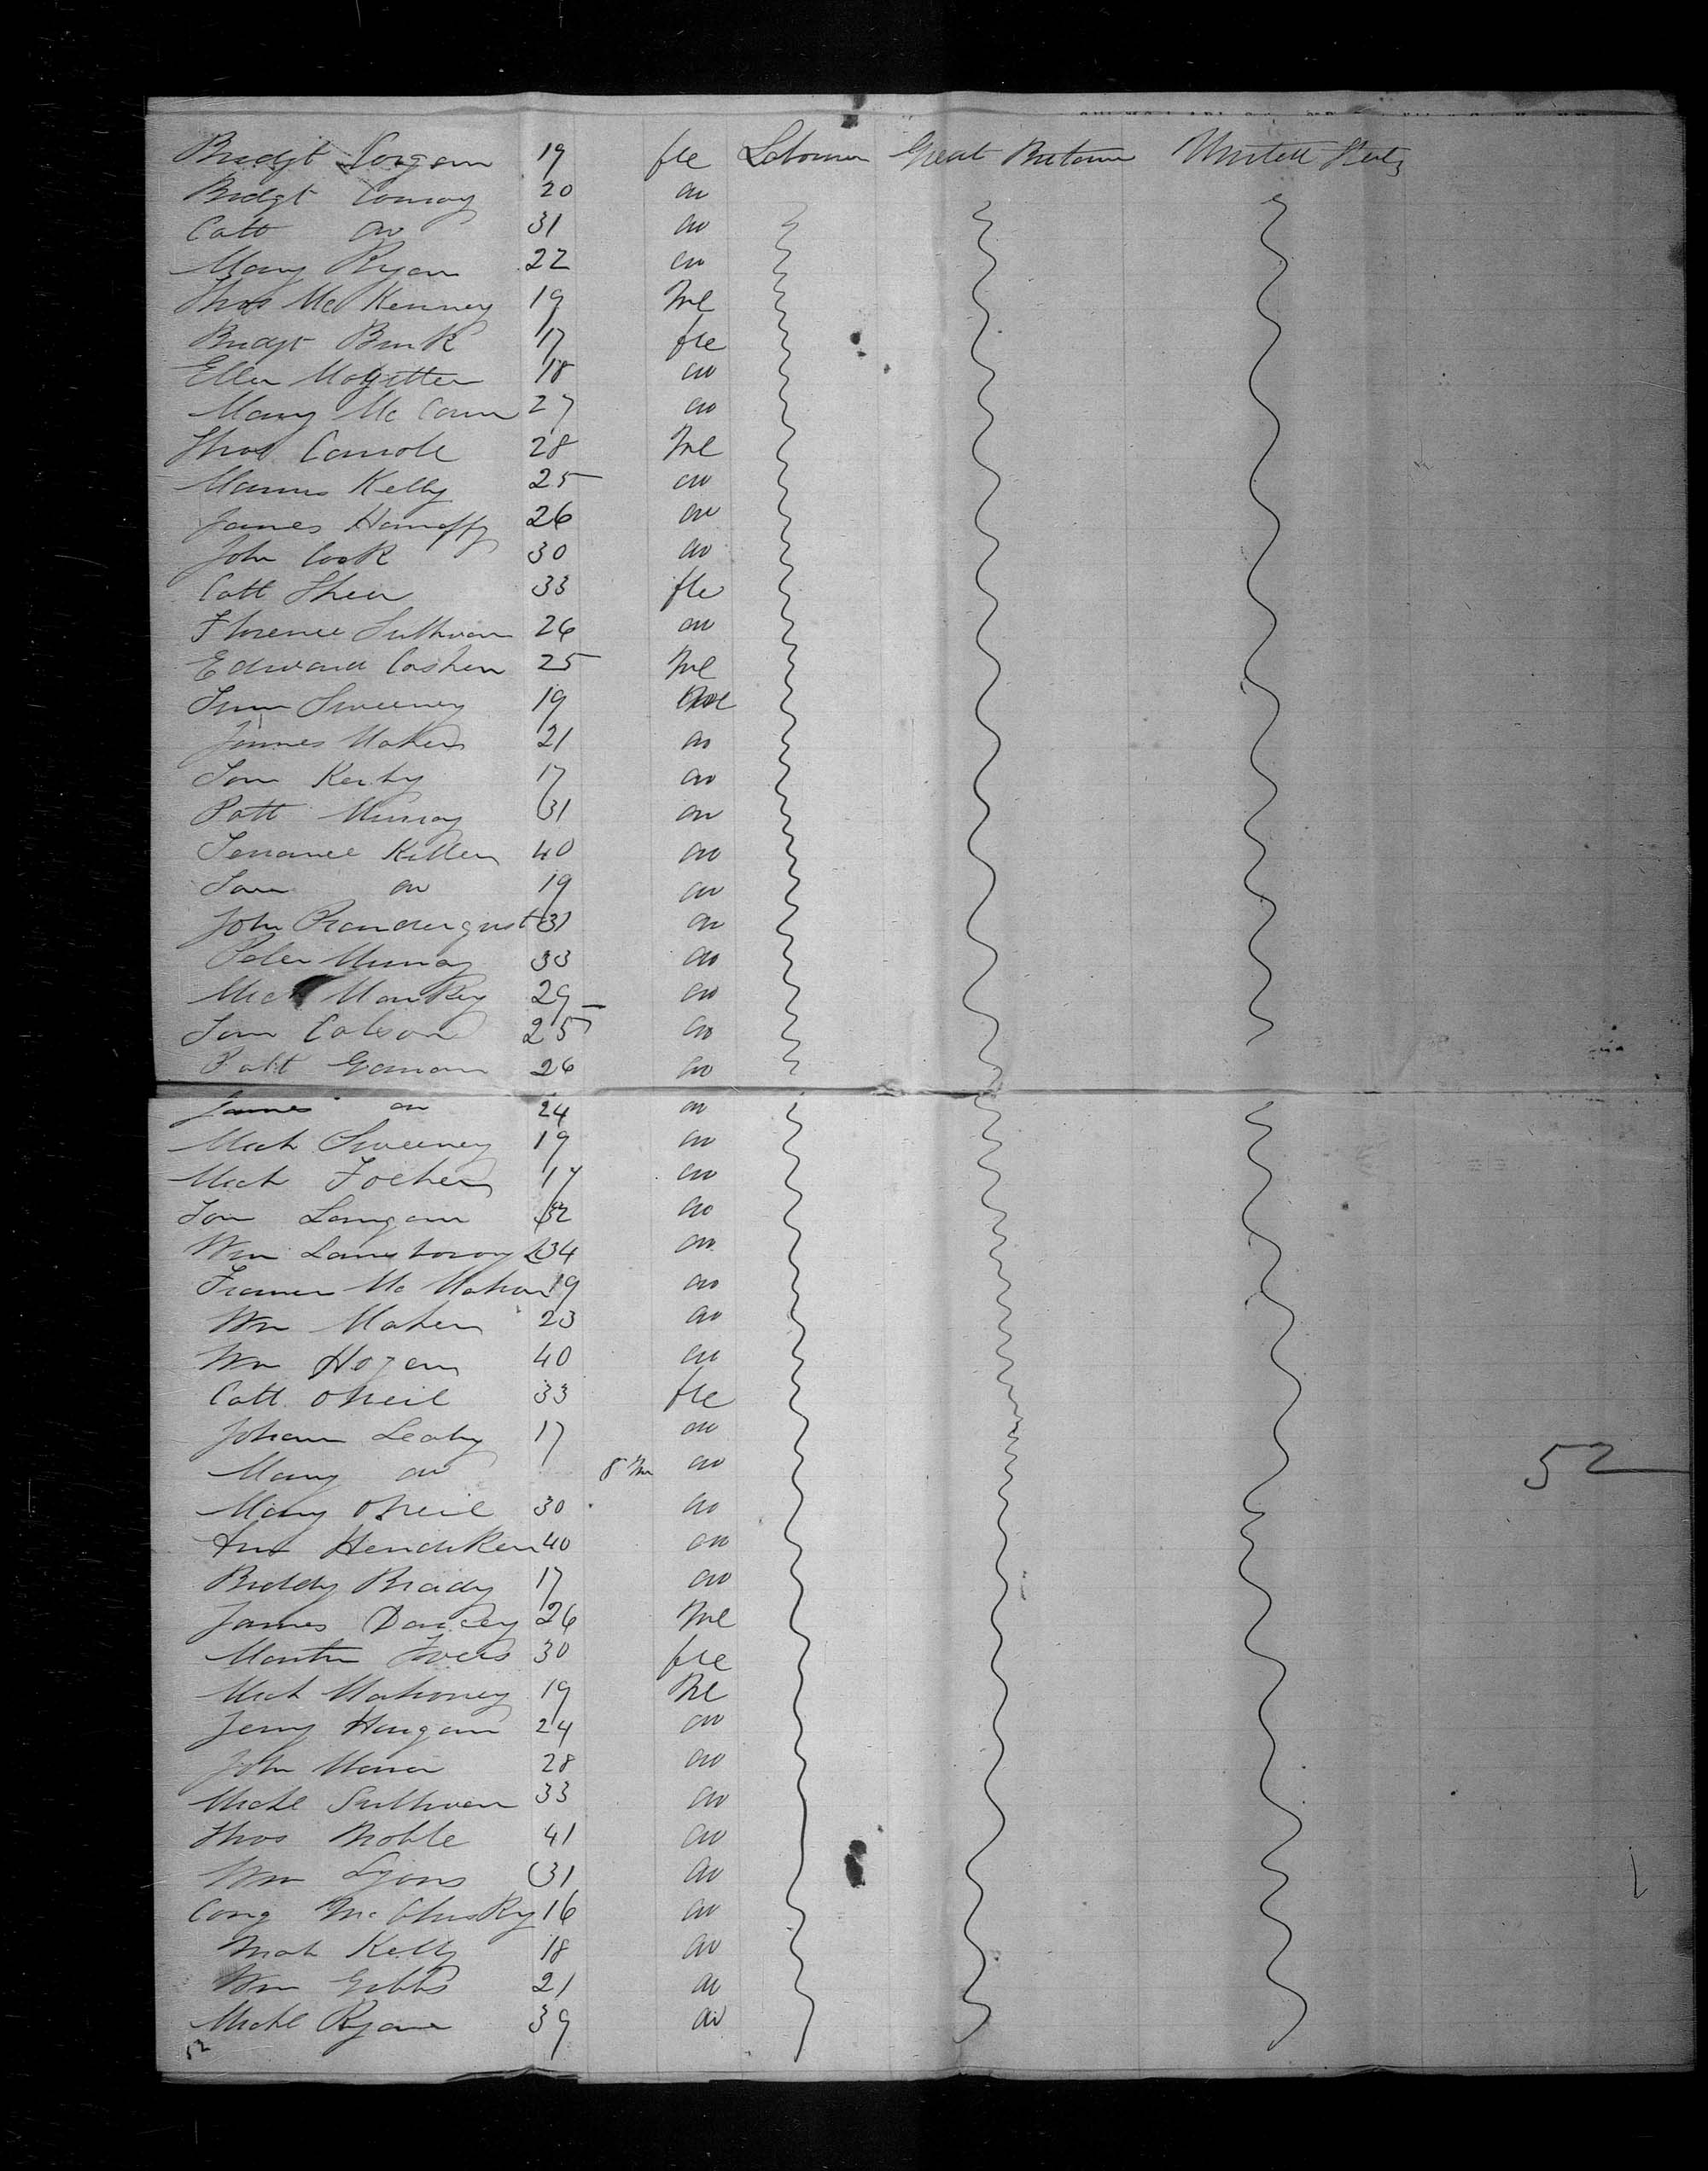 Bridgt Corgan 19 fle Labourer Great Britain United States
Bridgt Conroy 20 do
Cath do 31 do
Mary Ryan 22 do
Thos McKenney 19 Mle
Bridgt Burk 17 fle
Ellen 18 do
Mary McCann 27 do
Thos Carrole 28 Mle
Manus Kelly 25 do
James 26 do
John Cook 30 do
Catt Shea 33 fle
Florence Sullivan 26 do
Edward Cashen 25 Mle
Sweeney 19 Mle
James Maher 21 do
Tom Kerby 17 do
Patt Murray 31 do
Terrance Killen 40 do
Tom do 19 do
John Prandergust 31 do
Peter Murray 33 do
Mich Mankey 29 do
Tom Colson 25 do
Patt 26 do
James do 24 do
Mich Sweeney 19 do
Mich 17 do
Tom Langan 32 do
Wm 34 do
Frances McMahon 19 do
Wm Maher 23 do
Wm Hogan 40 do
Catt ONeil 33 fle
Johann Leahy 17 do
Mary do 8 Mn do
Mary ONeil 30 do
Ann Hendiken 40 do
Biddy Brady 17 do
James Dancey 26 Mle
Martin 30 fle
Mich Mahoney 19 Mle
Jerry Hangan 24 do
John 28 do
Michl Sullivan 33 do
Thos Noble 41 do
Wm Lyons 31 do
Mc Clusky 16 do
Mich Kelly 18 do
Wm Gibbs 21 do
Michl Ryan 39 do
52
52